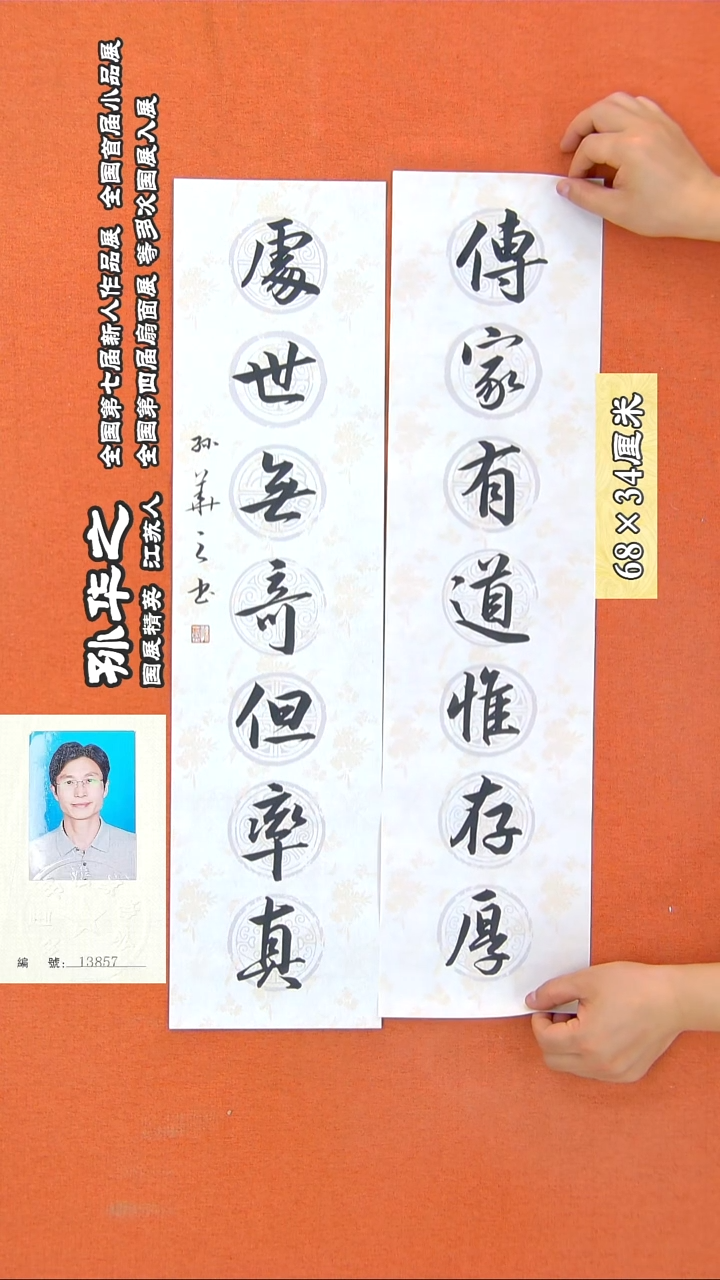 傳家有道惟存厚
處世無奇但率真
孙華之书
孙华之
国展精英 江苏人
全国第七届新人作品展 全国首届小品展
全国第四届扇面展 等多次国展入展
68×34厘米
編 號: 13857